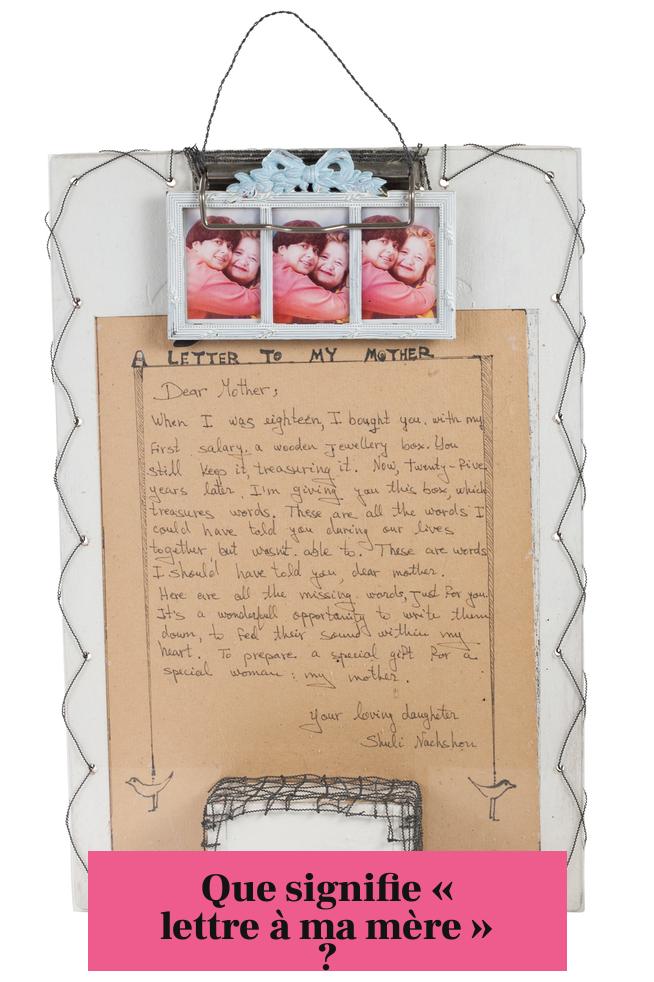 A LETTER TO MY MOTHER
Dear Mother;
When I was eighteen, I bought you, with my
first salary, a wooden jewellery box. You
still keep it, treasuring it. Now, twenty-five
years later, I'm giving you this box, which
treasures words. These are all the words I
could have told you during our lives
together, but wasn't able to. These are words
I should have told you, dear mother.
Here are all the missing words, just for you.
It's a wonderfull opportunity to write them
down, to feel their sound within my
heart. To prepare a special gift for a
special woman: my mother.
Your loving daugheter
Shuli Nachshon
Que signifie «
lettre à ma mère »
?